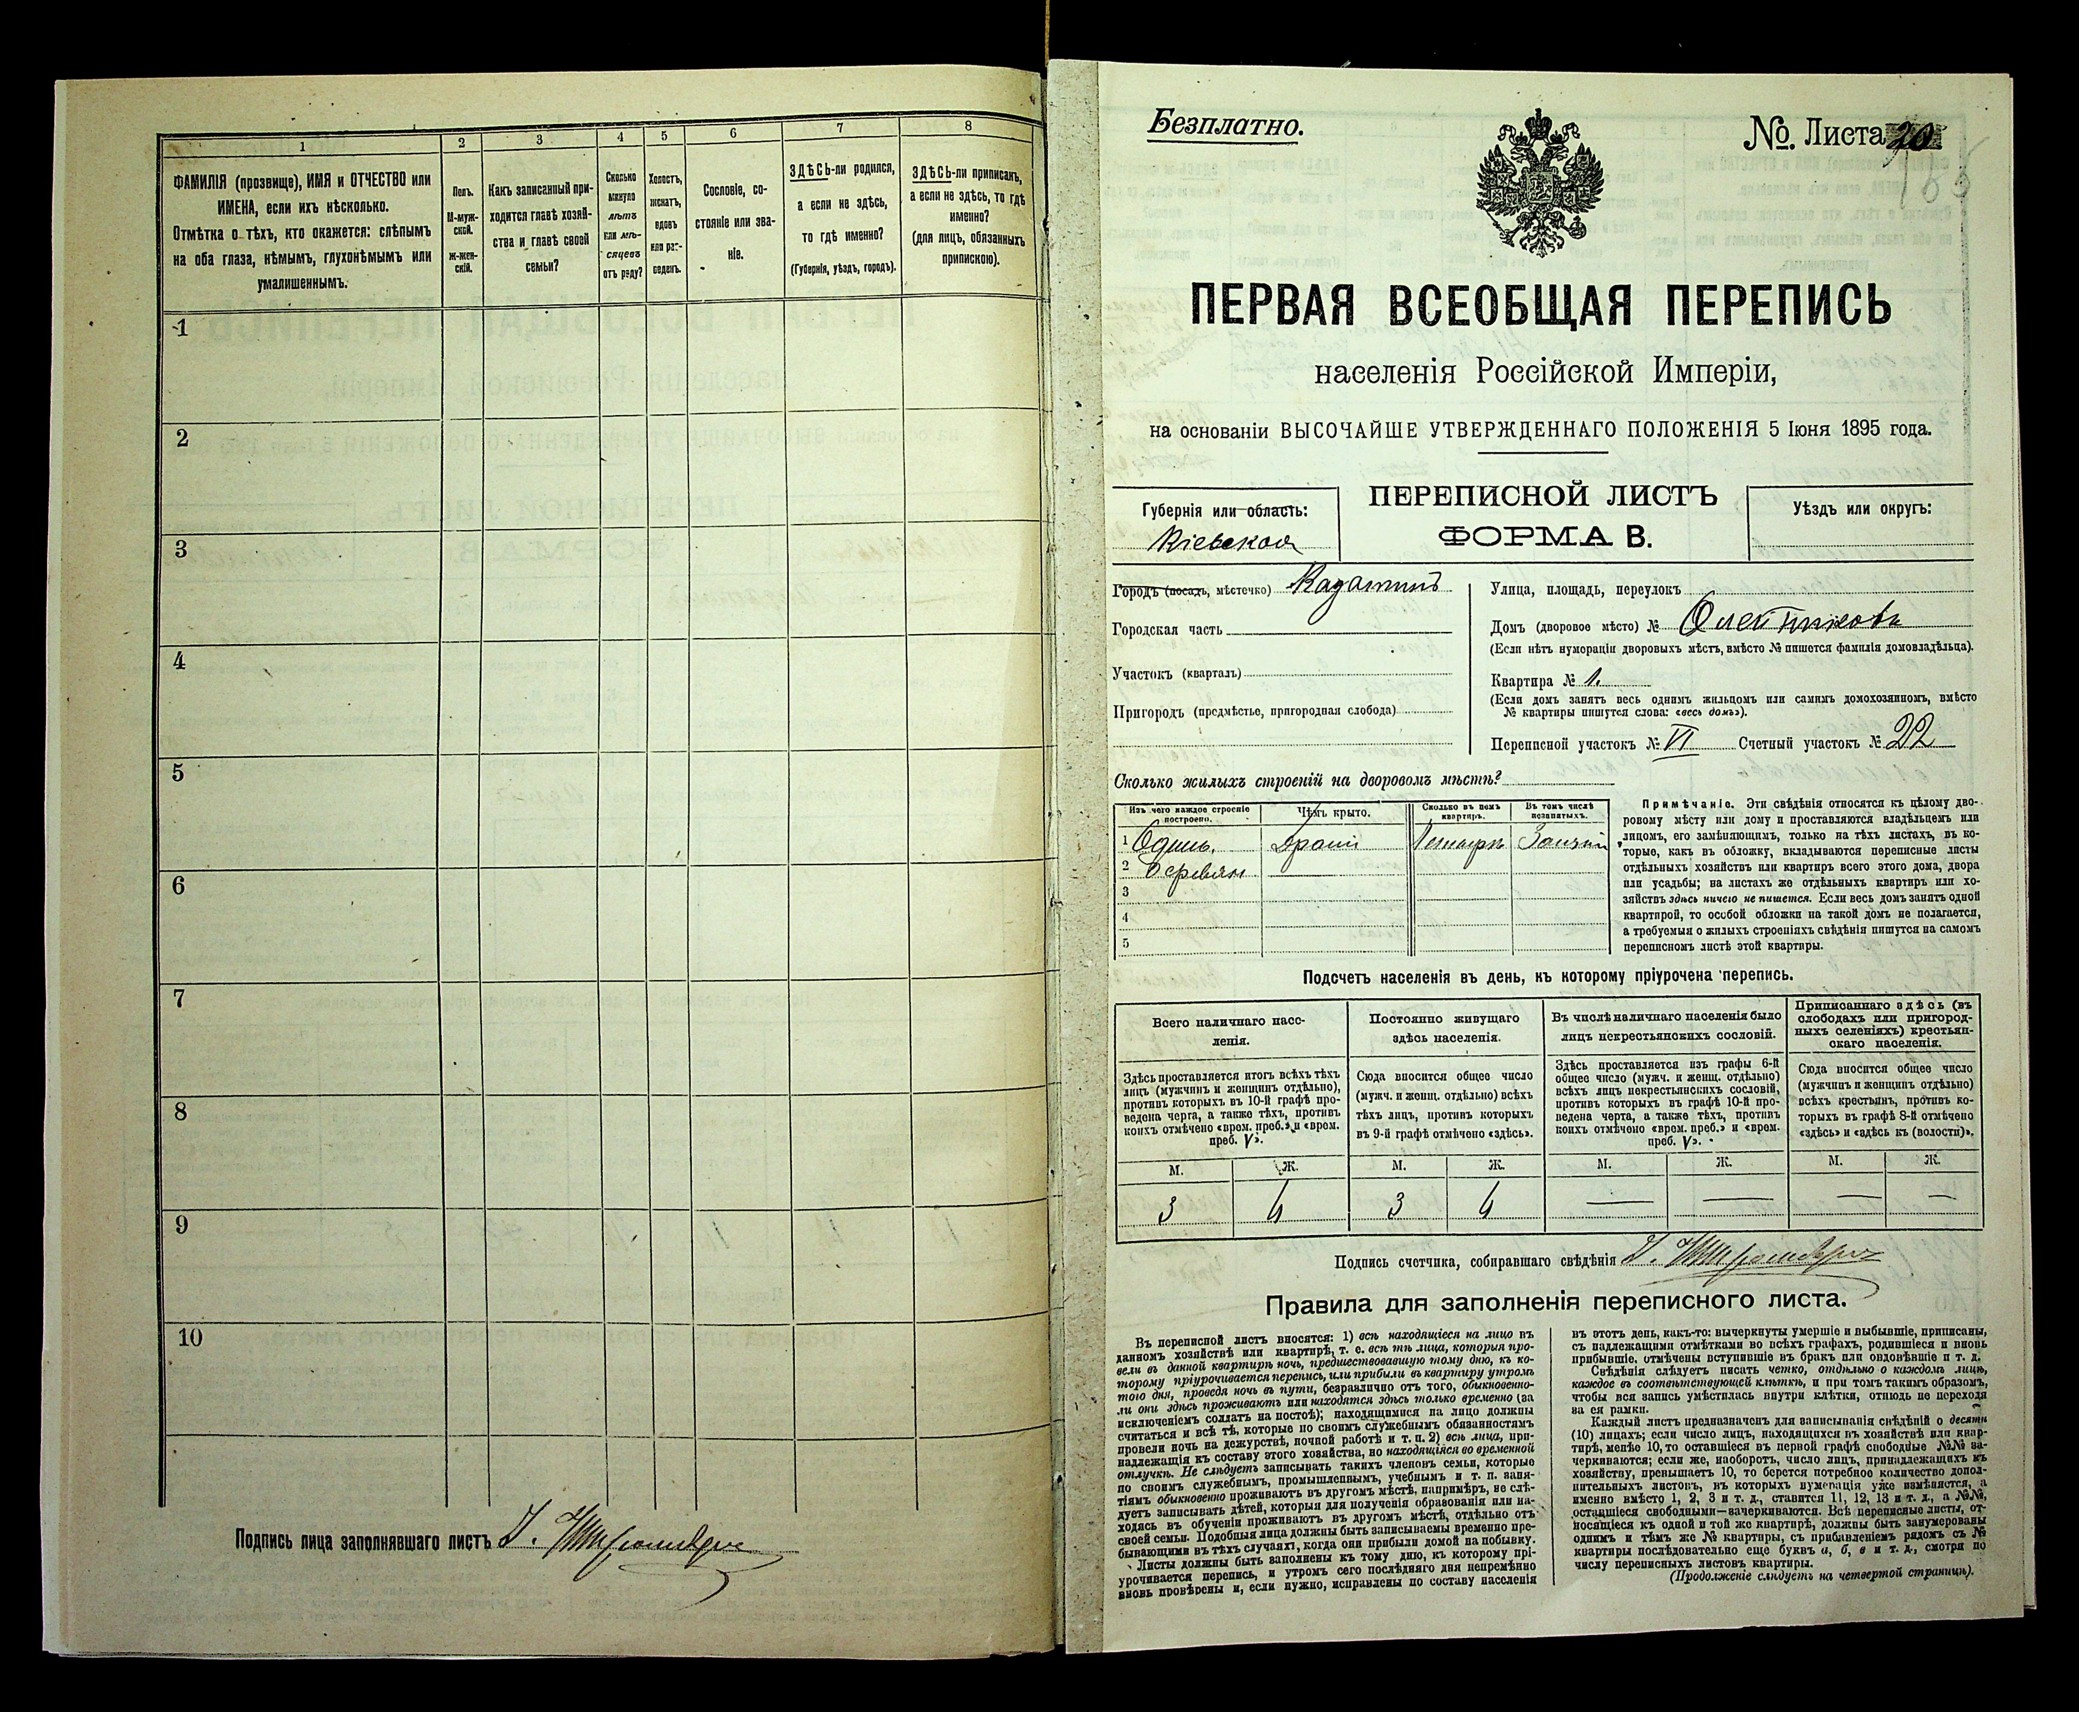 1
2
3
4
5
6
7
8
ФАМИЛІЯ (прозвище), ИМЯ и ОТЧЕСТВО или
ИМЕНА, если ихъ нѣсколько.
Отмѣтка о тѣхъ, кто окажется: слѣпымъ
на оба глаза, нѣмымъ, глухонѣмымъ или
умалишеннымъ.
Полъ.
М-муж-
ской.
Ж-жен-
скій.
Какъ записанный при-
ходится главѣ хозяй-
ства и главѣ своей
семьи?
Сколько
минуло
лѣтъ
или мѣ-
сяцевъ
отъ роду?
Холостъ,
женатъ,
вдовъ
или раз-
веденъ.
Сословіе, со-
стояніе или зва-
ніе.
ЗДѢСЬ-ли родился,
а если не здѣсь,
то гдѣ именно?
(Губернія, уѣздъ, городъ).
ЗДѢСЬ-ли приписанъ,
а если не здѣсь, то гдѣ
именно?
(для лицъ, обязанныхъ
припискою).
1
2
3
4
5
6
7
8
9
10
Подпись лица заполнявшаго листъ
Безплатно.
№. Листа 20
ПЕРВАЯ ВСЕОБЩАЯ ПЕРЕПИСЬ
населенія Россійской Имперіи,
на основаніи ВЫСОЧАЙШЕ УТВЕРЖДЕННАГО ПОЛОЖЕНІЯ 5 Іюня 1895 года.
Губернія или область:
Кіевская
ПЕРЕПИСНОЙ ЛИСТЪ
ФОРМА В.
Уѣздъ или округъ:
Городъ (посадъ, мѣстечко) Казатинъ
Городская часть
Участокъ (кварталъ)
Пригородъ (предмѣстье, пригородная слобода)
Улица, площадь, переулокъ
Домъ (дворовое мѣсто) № Олейникова
(Если нѣтъ нумераціи дворовыхъ мѣстъ, вмѣсто № пишется фамилія домовладѣльца).
Квартира № 1.
(Если домъ занятъ весь однимъ жильцомъ или самимъ домохозяиномъ, вмѣсто
№ квартиры пишутся слова: «весь домъ»).
Переписной участокъ № VI Счетный участокъ № 22
Сколько жилыхъ строеній на дворовомъ мѣстѣ?
Изъ чего каждое строеніе
построено.
Чѣмъ крыто.
Сколько въ немъ
квартиръ.
Въ томъ числѣ
незанятыхъ.
1 Одинъ.
2
3
4
5
Примѣчаніе. Эти свѣдѣнія относятся къ цѣлому дво-
ровому мѣсту или дому и проставляются владѣльцемъ или
лицомъ, его замѣняющимъ, только на тѣхъ листахъ, въ ко-
торые, какъ въ обложку, вкладываются переписные листы
отдѣльныхъ хозяйствъ или квартиръ всего этого дома, двора
или усадьбы; на листахъ же отдѣльныхъ квартиръ или хо-
зяйствъ здѣсь ничего не пишется. Если весь домъ занятъ одной
квартирой, то особой обложки на такой домъ не полагается,
а требуемыя о жилыхъ строеніяхъ свѣдѣнія пишутся на самомъ
переписномъ листѣ этой квартиры.
Подсчетъ населенія въ день, къ которому пріурочена перепись.
Всего наличнаго насе-
ленія.
Здѣсь проставляется итогъ всѣхъ тѣхъ
лицъ (мужчинъ и женщинъ отдѣльно),
противъ которыхъ въ 10-й графѣ про-
ведена черта, а также тѣхъ, противъ
коихъ отмѣчено «врем. преб.» и «врем.
преб. V».
Постоянно живущаго
здѣсь населенія.
Сюда вносится общее число
(мужч. и женщ. отдѣльно) всѣхъ
тѣхъ лицъ, противъ которыхъ
въ 9-й графѣ отмѣчено «здѣсь».
Въ числѣ наличнаго населенія было
лицъ некрестьянскихъ сословій.
Здѣсь проставляется изъ графы 6-й
общее число (мужч. и женщ. отдѣльно)
всѣхъ лицъ некрестьянскихъ сословій,
противъ которыхъ въ графѣ 10-й про-
ведена черта, а также тѣхъ, противъ
коихъ отмѣчено «врем. преб.» и «врем.
преб. V».
Приписаннаго здѣсь (въ
слободахъ или пригород-
ныхъ селеніяхъ) крестьян-
скаго населенія.
Сюда вносится общее число
(мужчинъ и женщинъ отдѣльно)
всѣхъ крестьянъ, противъ ко-
торыхъ въ графѣ 8-й отмѣчено
«здѣсь» и «здѣсь къ (волости)».
М. Ж. М. Ж. М. Ж. М. Ж.
3 4 3 4 — — — —
Подпись счетчика, собиравшаго свѣдѣнія
Правила для заполненія переписного листа.
Въ переписной листъ вносятся: 1) всѣ находящіеся на лицо въ
данномъ хозяйствѣ или квартирѣ, т. е. всѣ тѣ лица, которыя про-
вели въ данной квартирѣ ночь, предшествовавшую тому дню, къ ко-
торому пріурочивается перепись, или прибыли въ квартиру утромъ
того дня, проведя ночь въ пути, безразлично отъ того, обыкновенно-
ли они здѣсь проживаютъ или находятся здѣсь только временно (за
исключеніемъ солдатъ на постоѣ); находящимися на лицо должны
считаться и всѣ тѣ, которые по своимъ служебнымъ обязанностямъ
провели ночь на дежурствѣ, ночной работѣ и т. п. 2) всѣ лица, при-
надлежащія къ составу этого хозяйства, но находящіяся во временной
отлучкѣ. Не слѣдуетъ записывать такихъ членовъ семьи, которые
по своимъ служебнымъ, промышленнымъ, учебнымъ и т. п. заня-
тіямъ обыкновенно проживаютъ въ другомъ мѣстѣ, напримѣръ, не слѣ-
дуетъ записывать дѣтей, которыя для полученія образованія или на-
ходясь въ обученіи проживаютъ въ другомъ мѣстѣ, отдѣльно отъ
своей семьи. Подобныя лица должны быть записываемы временно пре-
бывающими въ тѣхъ случаяхъ, когда они прибыли домой на побывку.
Листы должны быть заполнены къ тому дню, къ которому прі-
урочивается перепись, и утромъ сего послѣдняго дня непремѣнно
вновь провѣрены и, если нужно, исправлены по составу населенія
въ этотъ день, какъ-то: вычеркнуты умершіе и выбывшіе, приписаны,
съ надлежащими отмѣтками во всѣхъ графахъ, родившіеся и вновь
прибывшіе, отмѣчены вступившіе въ бракъ или овдовѣвшіе и т. д.
Свѣдѣнія слѣдуетъ писать четко, отдѣльно о каждомъ лицѣ,
каждое въ соотвѣтствующей клѣткѣ, и при томъ такимъ образомъ,
чтобы вся запись умѣстилась внутри клѣтки, отнюдь не переходя
за ея рамки.
Каждый листъ предназначенъ для записыванія свѣдѣній о десяти
(10) лицахъ; если число лицъ, находящихся въ хозяйствѣ или квар-
тирѣ, менѣе 10, то оставшіеся въ первой графѣ свободные №№ за-
черкиваются; если же, наоборотъ, число лицъ, принадлежащихъ къ
хозяйству, превышаетъ 10, то берется потребное количество допол-
нительныхъ листовъ, въ которыхъ нумерація уже измѣняется, а
именно вмѣсто 1, 2, 3 и т. д., ставится 11, 12, 13 и т. д., а №№,
оставшіеся свободными—зачеркиваются. Всѣ переписные листы, от-
носящіеся къ одной и той же квартирѣ, должны быть занумерованы
однимъ и тѣмъ же № квартиры, съ прибавленіемъ рядомъ съ №
квартиры послѣдовательно еще буквъ а, б, в и т. д., смотря по
числу переписныхъ листовъ квартиры.
(Продолженіе слѣдуетъ на четвертой страницѣ).